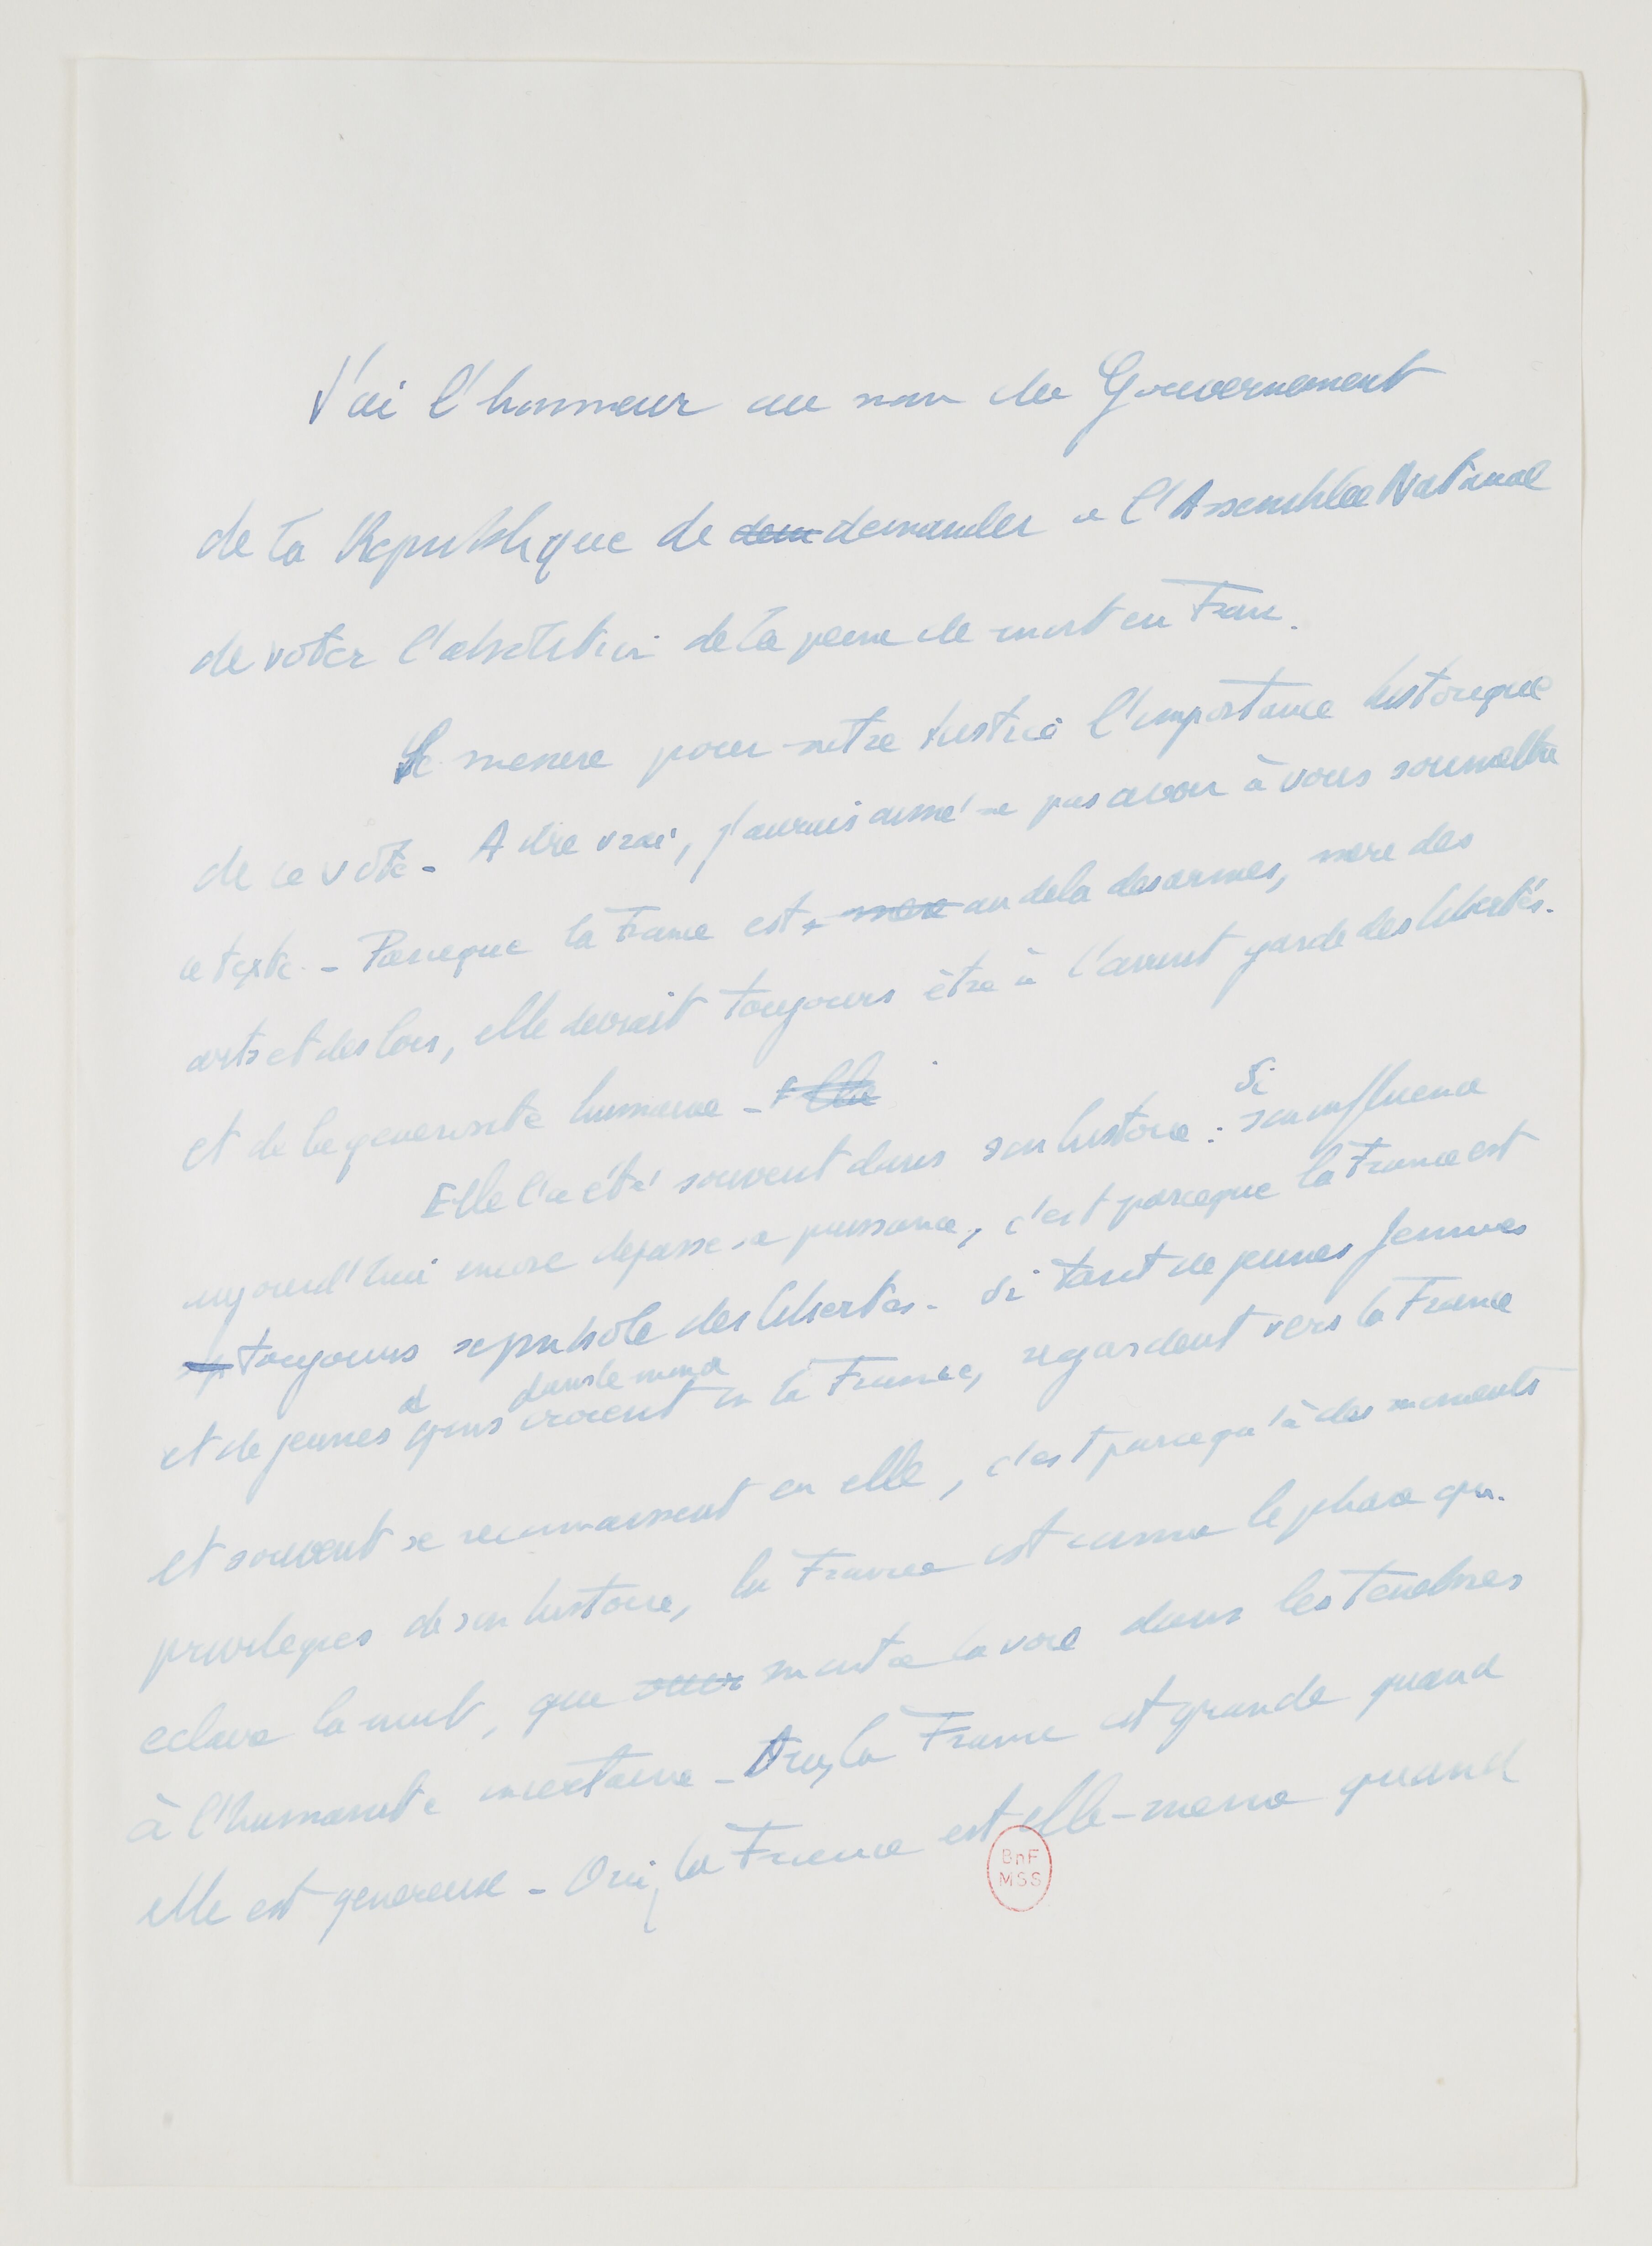 J'ai l'honneur au nom du Gouvernement
de la Republique de dem demander a l'Assemblée National
de voter l'abolition de la peine de mort en France.
Je mesure pour notre Justice l'importance historique
de ce vote - A dire vrai, j'aurais aimé ne pas avoir à vous soumettre
ce texte - Parceque la France est, mere au dela des armes, mere des
arts et des lois, elle devrait toujours être à l'avant garde des libertés -
et de la generosite humaine - Elle
Elle l'a été souvent dans son histoire : Si son influence
aujourd'hui encore depasse sa puissance, c'est parceque la France est
toujours symbole des libertés - Si tant de jeunes femmes
et de jeunes gens dans le monde croient en la France, regardent vers la France
et souvent se reconnaissent en elle, c'est parce qu'à des moments
privilegies de son histoire, la France est comme le phare qui
eclaire la nuit, que montre la voie dans les tenebres
à l'humanité incertaine - Oui, la France est grande quand
elle est genereuse - Oui, la France est elle-meme quand
BnF
MSS